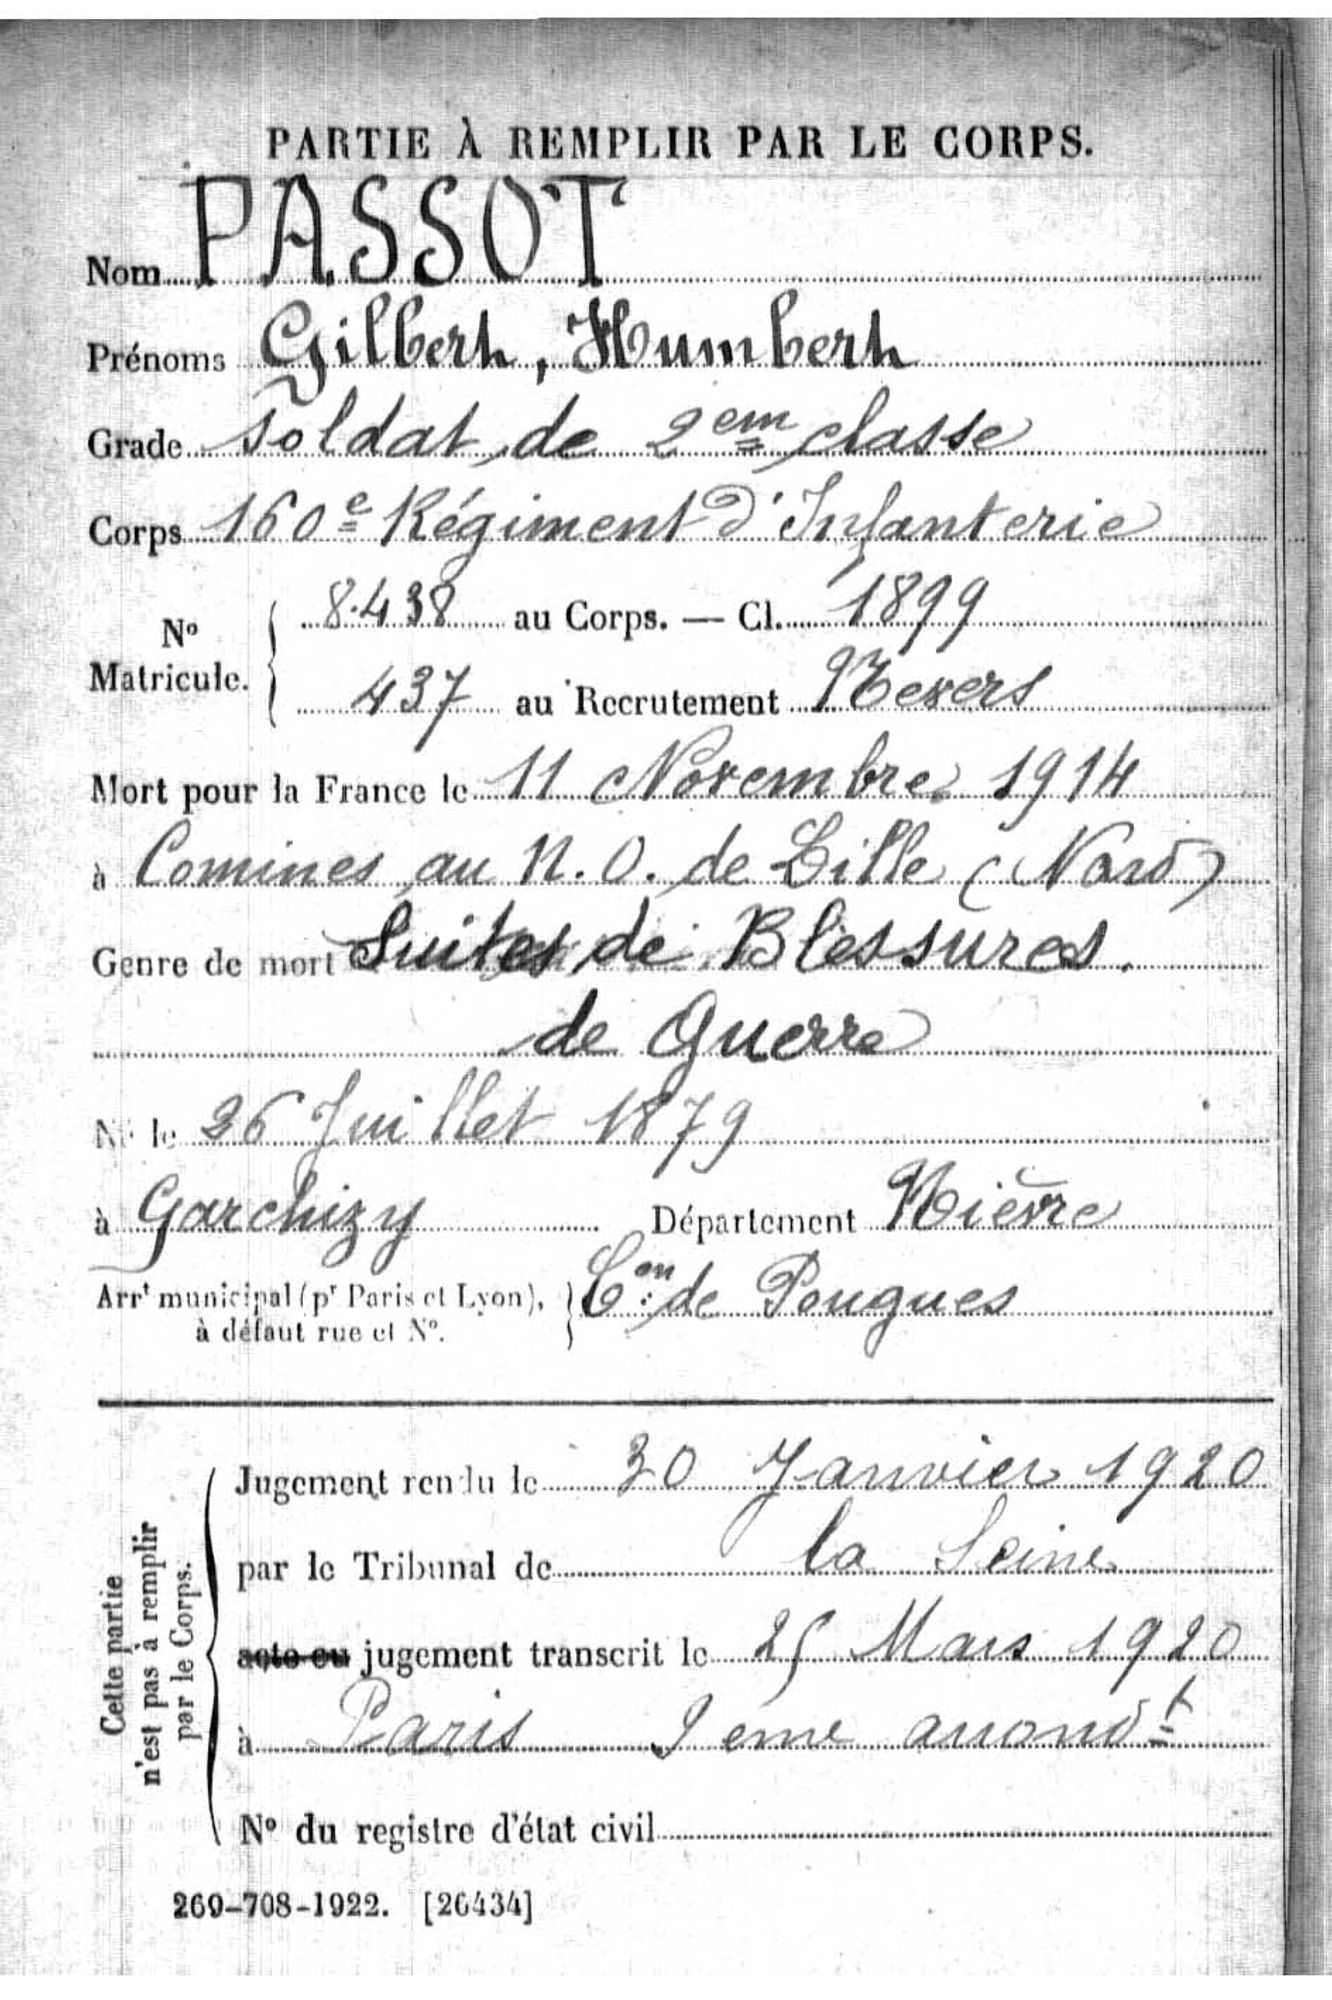 PARTIE À REMPLIR PAR LE CORPS.
Nom PASSOT
Prénoms Gilbert, Humbert
Grade soldat de 2em classe
Corps 160e Régiment d'Infanterie
No Matricule. { 8.438 au Corps. — Cl. 1899
437 au Recrutement Nevers
Mort pour la France le 11 Novembre 1914
à Comines au N.O. de Lille (Nord)
Genre de mort Suites de Blessures
de Guerre
Né le 26 Juillet 1879
à Garchizy Département Nièvre
Arrt municipal (pr Paris et Lyon), à défaut rue et No. } Con de Pougues
Cette partie n'est pas à remplir par le Corps.
Jugement rendu le 30 Janvier 1920
par le Tribunal de la Seine
acte ou jugement transcrit le 25 Mars 1920
à Paris 9eme arrondt
No du registre d'état civil
269-708-1922. [26434]